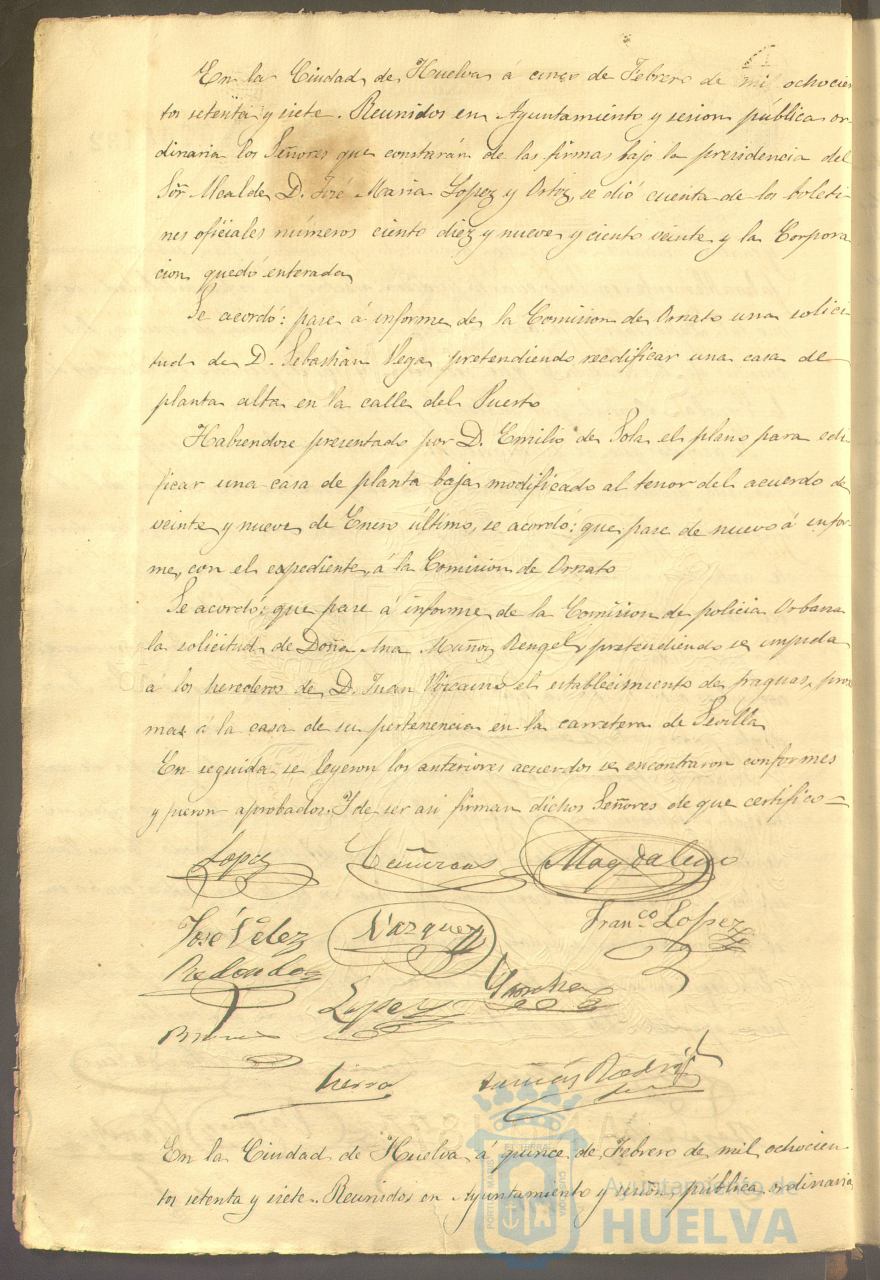 En la Ciudad de Huelva á cinco de Febrero de mil ochocien
tos setenta y siete. Reunidos en Ayuntamiento y sesion pública or
dinaria los Señores que constarán de las firmas bajo la presidencia del
Sôr Alcalde D. José Maria Lopez y Ortiz, se dió cuenta de los boleti-
nes oficiales números ciento diez y nueve y ciento veinte y la Corpora
cion quedó enterada
Se acordó: pase á informe de la Comision de Ornato una solici-
tud de D. Sebastian Vega pretendiendo reedificar una casa de
planta alta en la calle del Puerto
Habiendose presentado por D. Emilio de Sola el plano para edi-
ficar una casa de planta baja modificado al tenor del acuerdo de
veinte y nueve de Enero último, se acordó: que pase de nuevo á infor-
me, con el espediente, á la Comision de Ornato
Se acordó: que pase á informe de la Comision de policia Urbana
la solicitud de Doña Ana Muñoz Rengel, pretendiendo se impida
a los herederos de D. Juan Vizcaino el establecimiento de fraguas, proxi
mas á la casa de su pertenencia en la carretera de Sevilla
En seguida se leyeron los anteriores acuerdos se encontraron conformes
y fueron aprobados. Y de ser asi firman dichos Señores de que certifico =
Lopez Magdaleno
José Velez Vazquez Franco Lopez
Redondo Lopez
Tierra Tomás Rodri
En la Ciudad de Huelva á quince de Febrero de mil ochocien
tos setenta y siete. Reunidos en Ayuntamiento y sesion pública ordinaria
Ayuntamiento de
HUELVA